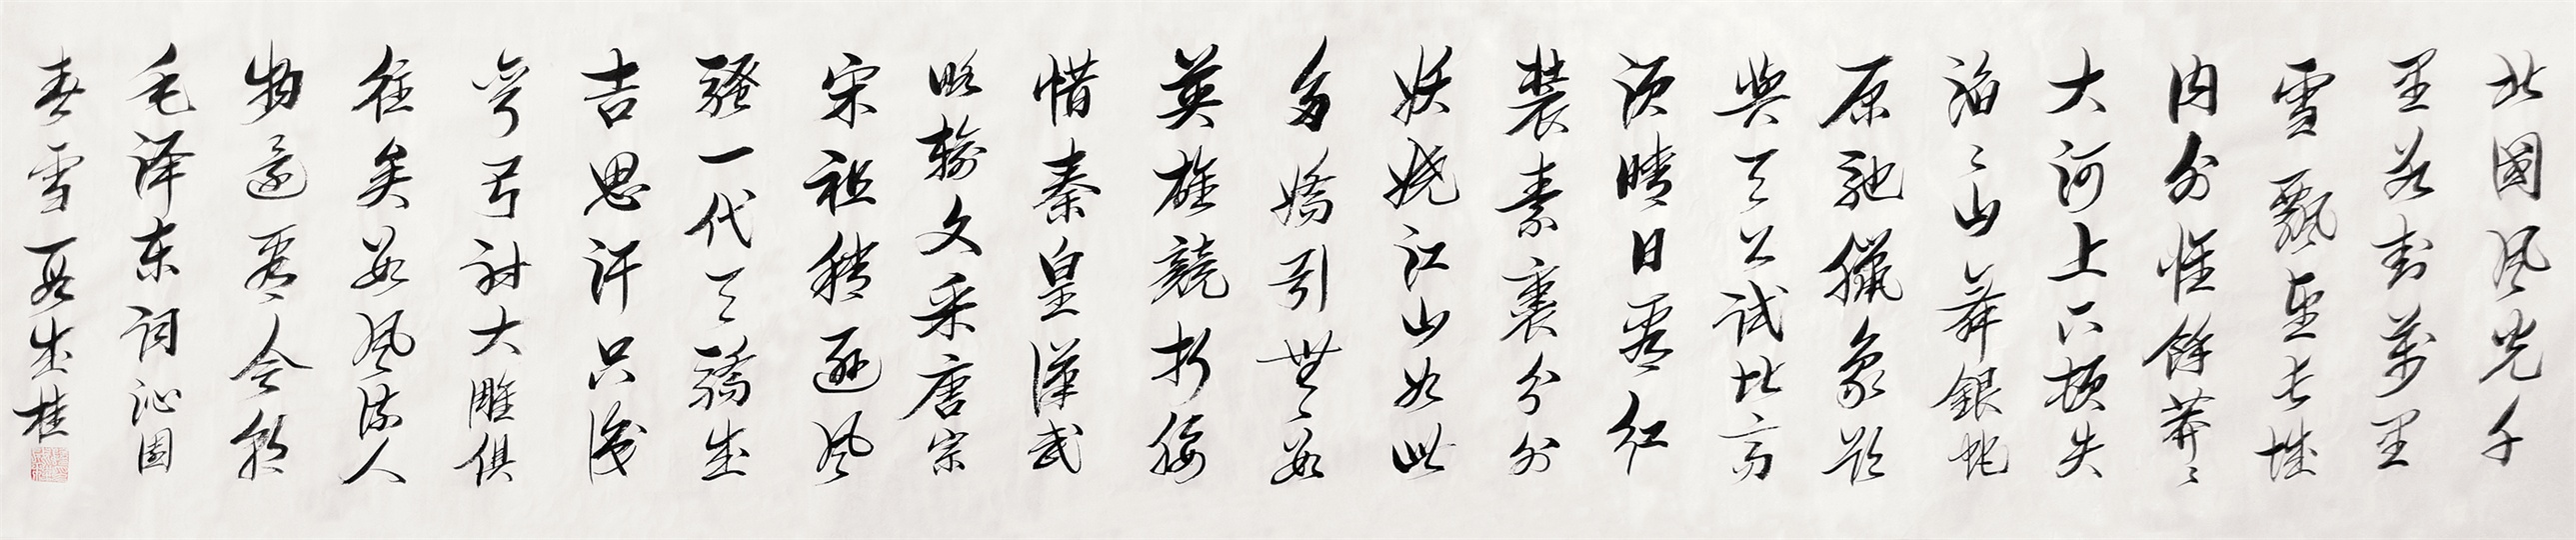 北國风光千
里冰封萬里
雪飄望长城
内外惟餘莽〻
大河上下顿失
滔〻山舞銀蛇
原驰蠟象欲
與天公试比高
须晴日看红
裝素裹分外
妖娆江山如此
多嬌引無数
英雄競折腰
惜秦皇漢武
略输文采唐宗
宋祖稍逊风
骚一代天骄成
吉思汗只识
弯弓射大雕俱
往矣数风流人
物还看今朝
毛泽东词沁园
春雪夏成桂